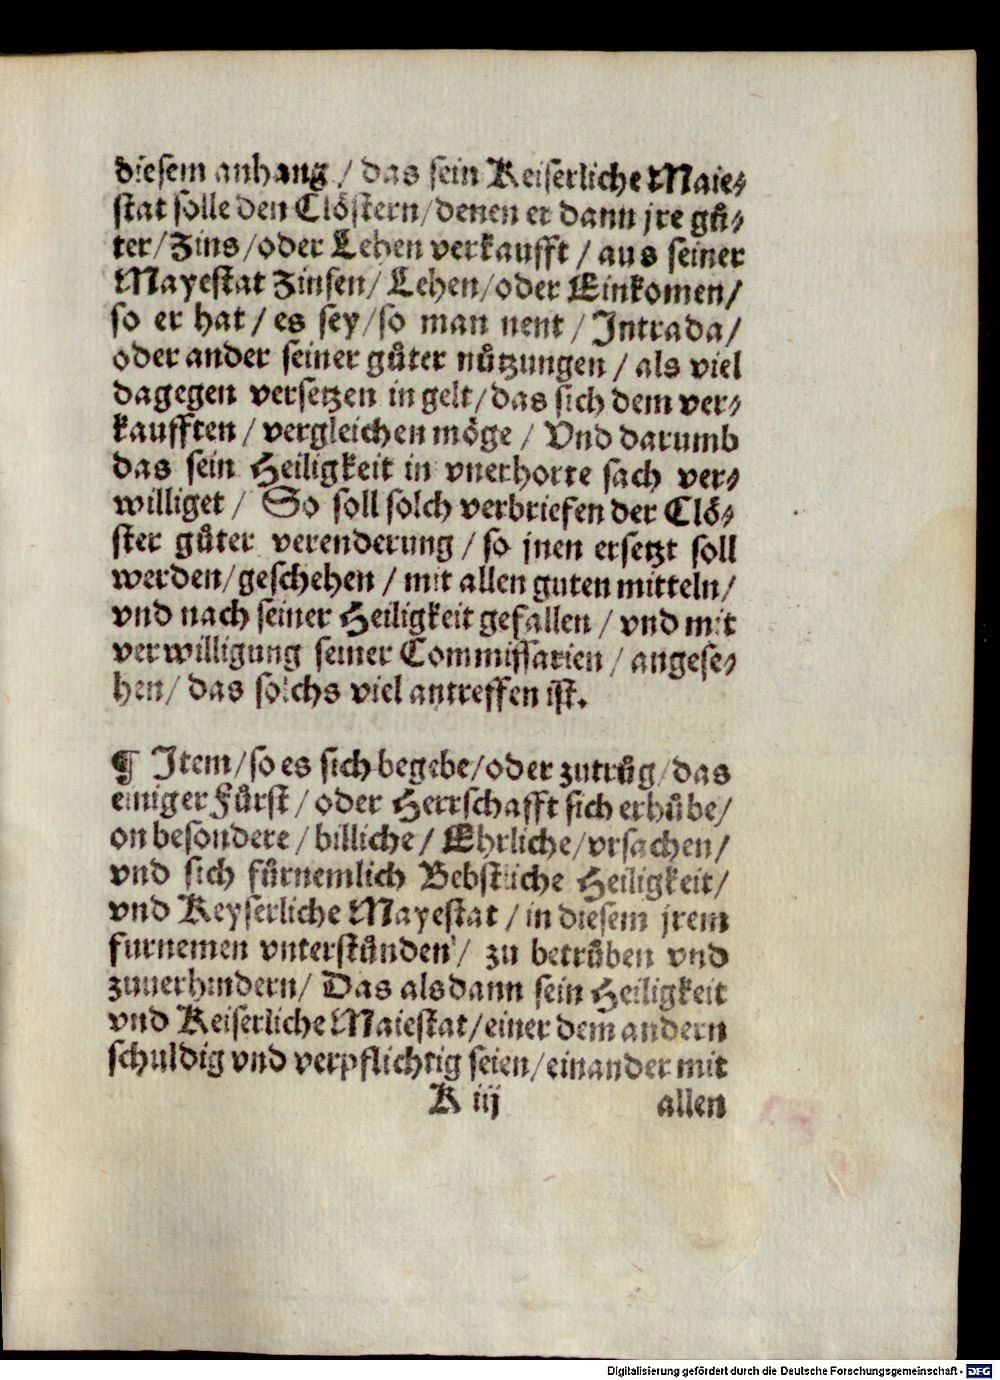 diesem anhang / das sein Keiserliche Maie⸗
stat solle den Clöstern / denen er dann jre gů⸗
ter / Zins / oder Lehen verkaufft / aus seiner
Mayestat Zinsen / Lehen / oder Einkomen /
so er hat / es sey / so man nent / Intrada /
oder ander seiner gůter nůtzungen / als viel
dagegen versetzen in gelt / das sich dem ver⸗
kaufften / vergleichen möge / Vnd darumb
das sein Heiligkeit in vnerhorte sach ver⸗
williget / So soll solch verbriefen der Clö⸗
ster gůter verenderung / so jnen ersetzt soll
werden / geschehen / mit allen guten mitteln /
vnd nach seiner Heiligkeit gefallen / vnd mit
verwilligung seiner Commissarien / angese⸗
hen / das solchs viel antreffen ist.
¶ Item / so es sich begebe / oder zutrůg / das
einiger Fůrst / oder Herrschafft sich erhůbe /
on besondere / billiche / Ehrliche / vrsachen /
vnd sich fůrnemlich Bebstliche Heiligkeit /
vnd Keyserliche Mayestat / in diesem jrem
furnemen vnterstůnden / zu betrůben vnd
zuuerhindern / Das alsdann sein Heiligkeit
vnd Keiserliche Maiestat / einer dem andern
schuldig vnd verpflichtig seien / einander mit
K iij allen
Digitalisierung gefördert durch die Deutsche Forschungsgemeinschaft - DFG